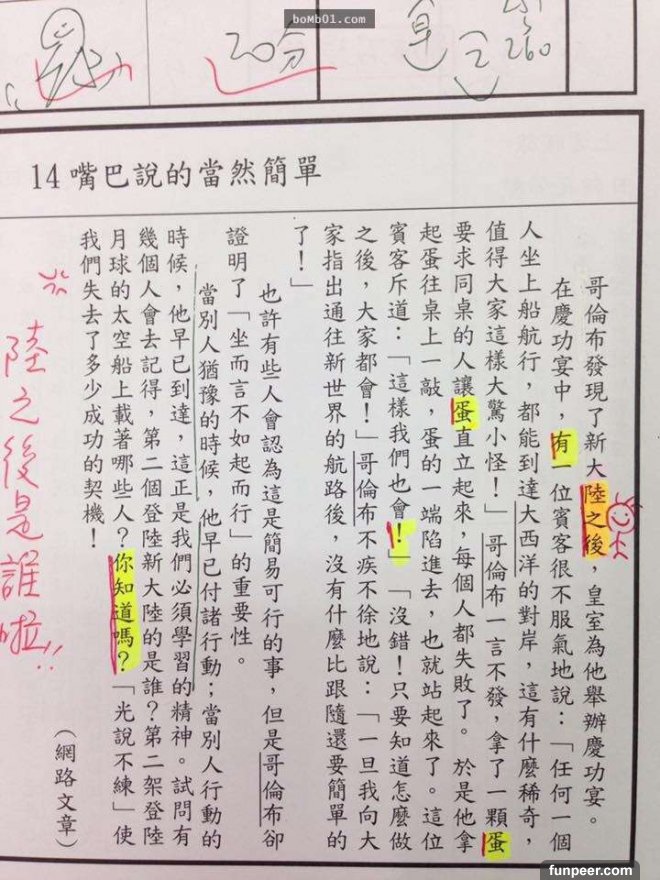 boMb01.com
20分
260
14 嘴巴說的當然簡單
哥倫布發現了新大陸之後，皇室為他舉辦慶功宴。
在慶功宴中，有一位賓客很不服氣地說：「任何一個
人坐上船航行，都能到達大西洋的對岸，這有什麼稀奇，
值得大家這樣大驚小怪！」哥倫布一言不發，拿了一顆蛋
要求同桌的人讓蛋直立起來，每個人都失敗了。於是他拿
起蛋往桌上一敲，蛋的一端陷進去，也就站起來了。這位
賓客斥道：「這樣我們也會！」「沒錯！只要知道怎麼做
之後，大家都會！」哥倫布不疾不徐地說：「一旦我向大
家指出通往新世界的航路後，沒有什麼比跟隨還要簡單的
了！」
也許有些人會認為這是簡易可行的事，但是哥倫布卻
證明了「坐而言不如起而行」的重要性。
當別人猶豫的時候，他早已付諸行動；當別人行動的
時候，他早已到達，這正是我們必須學習的精神。試問有
幾個人會去記得，第二個登陸新大陸的是誰？第二架登陸
月球的太空船上載著哪些人？你知道嗎？「光說不練」使
我們失去了多少成功的契機！
（網路文章）
陸之後是誰啦!!
funpeer.com